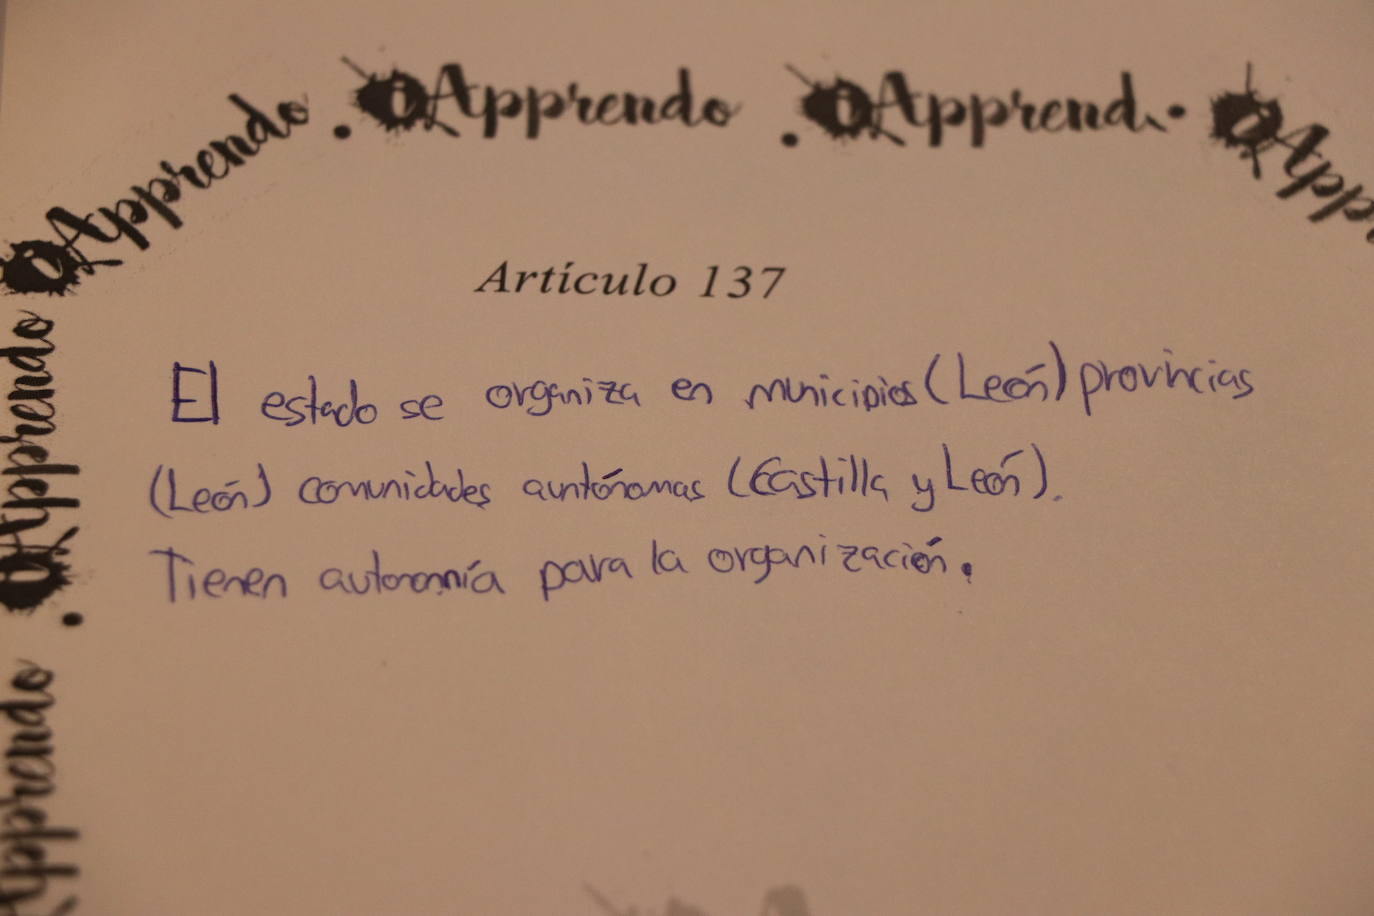 Apprendo
Apprendo
Apprend
App
Apprendo
Apprendo
Apprendo
Artículo 137
El estado se organiza en municipios (León) provincias
(León) comunidades auntónomas (Castilla y León).
Tienen autonomía para la organización.